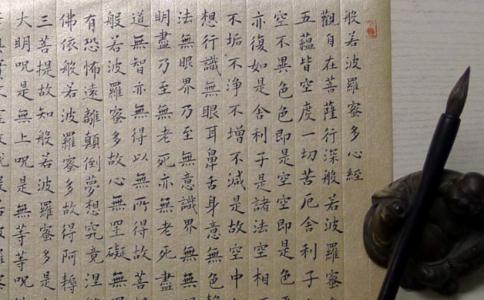 般若波羅蜜多心經
觀自在菩薩行深般若波羅蜜
五蘊皆空度一切苦厄舍利子
空不異色色即是空空即是色
亦復如是舍利子是諸法空相
不垢不淨不增不減是故空中
想行識無眼耳鼻舌身意無色
法無眼界乃至無意識界無無
明盡乃至無老死亦無老死盡
道無智亦無得以無所得故菩
般若波羅蜜多故心無罣礙無
有恐怖遠離顛倒夢想究竟涅
佛依般若波羅蜜多故得阿耨
三菩提故知般若波羅蜜多是
大明呪是無上呪是無等等呪